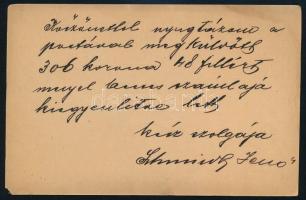 Köszönettel nyugtázom a
postával megküldött
306 korona 48 fillért
mivel becses számlája
kiegyenlítve lett
kész szolgája
Schmidt Jenő